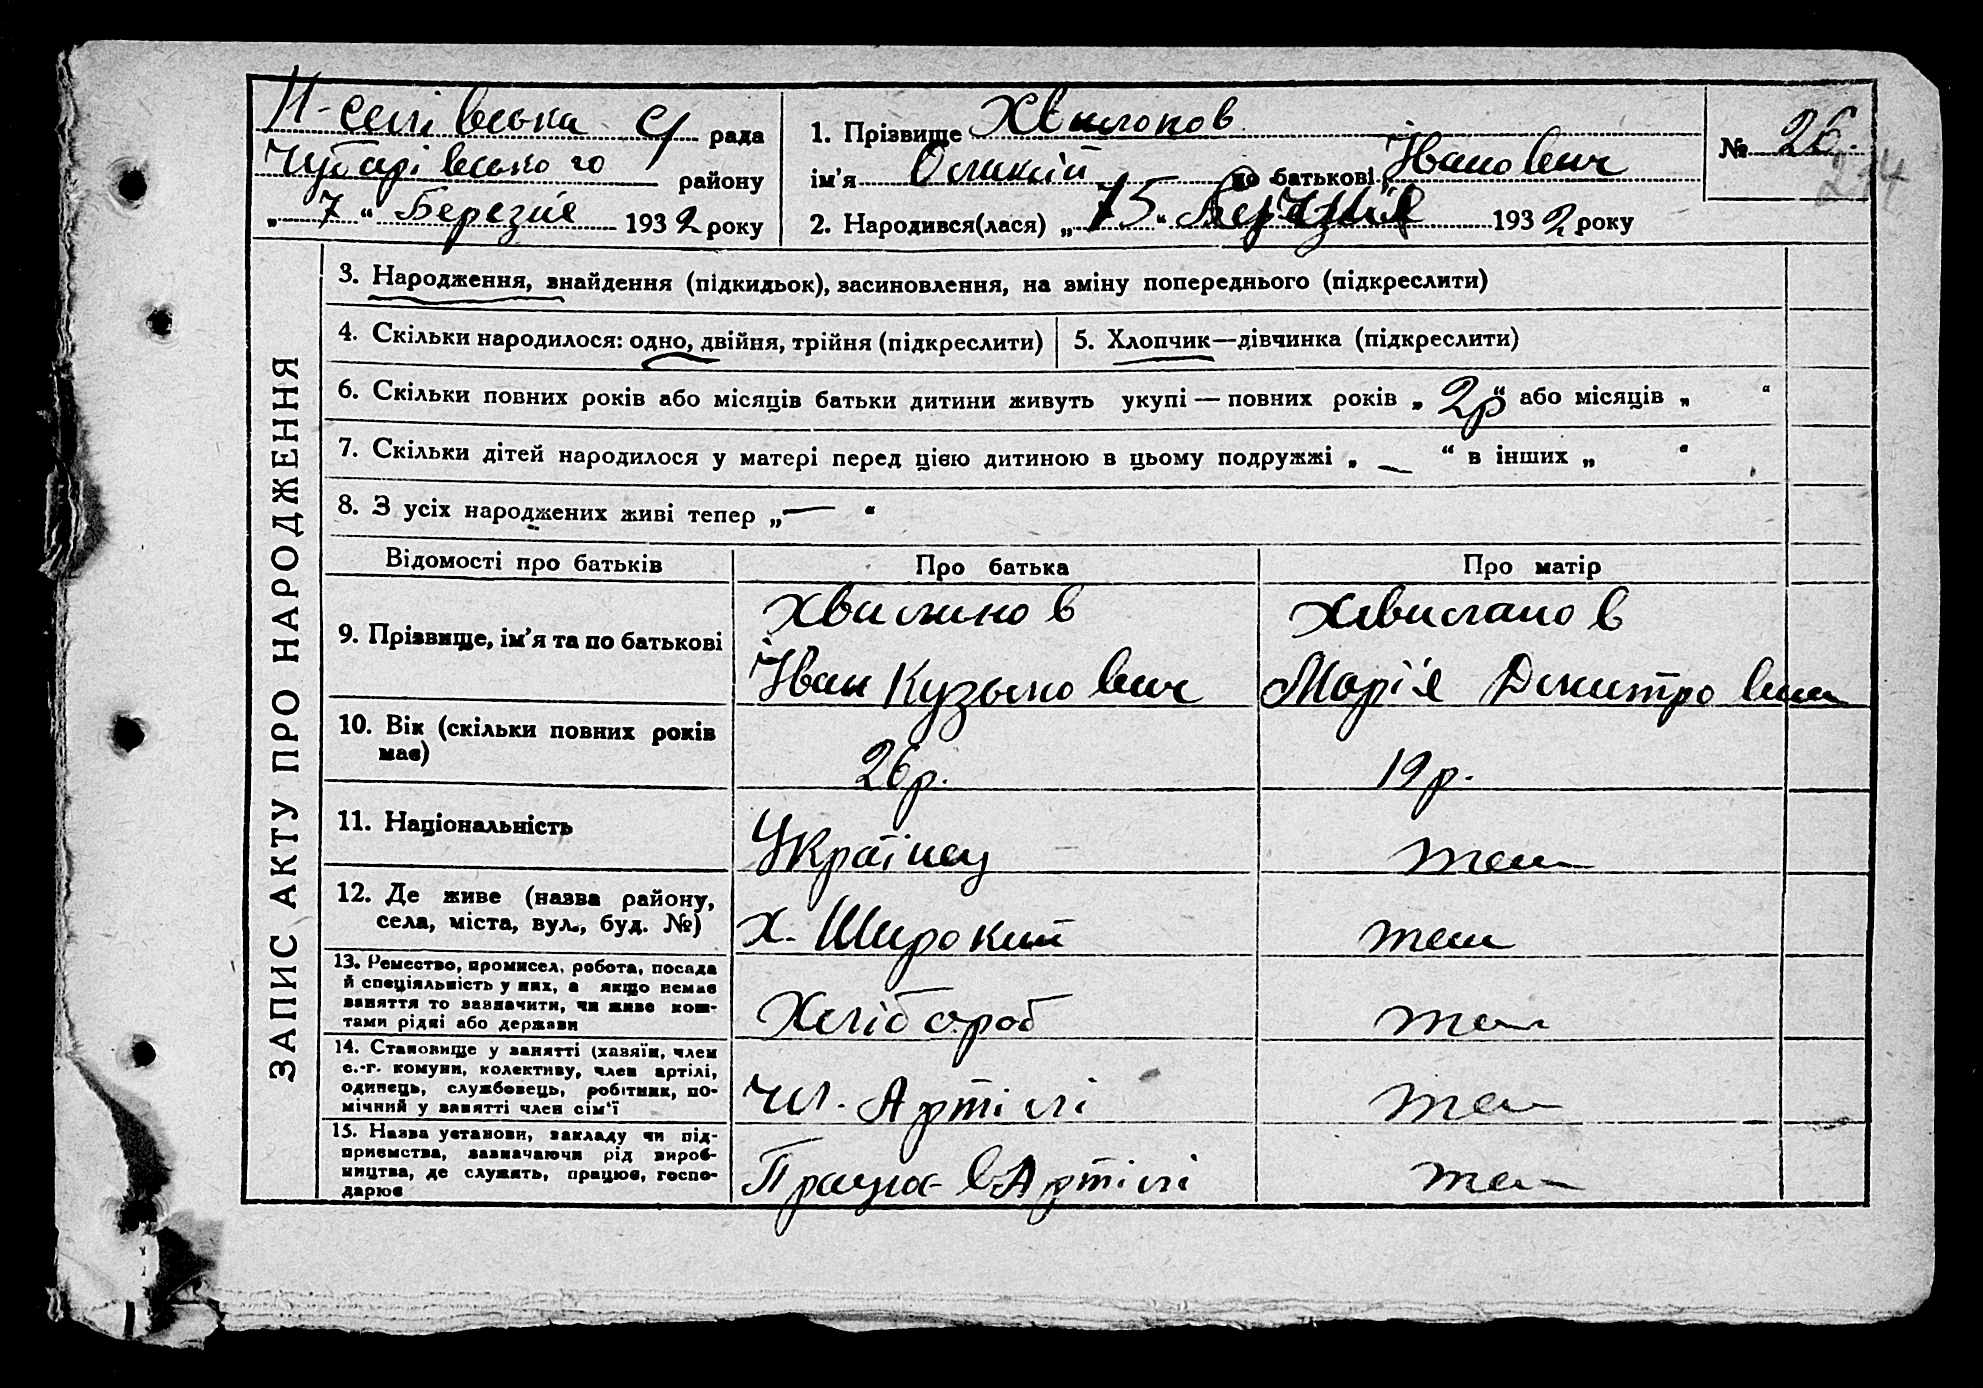 Н-Селівська С/ рада
Чубарівського району
„ 7 “ Березня 1932 року
1. Прізвище Хвилопов
ім’я по батькові Іванович
2. Народився(лася) „ “ Березня 1932 року
№ 26.
214
ЗАПИС АКТУ ПРО НАРОДЖЕННЯ
3. Народження, знайдення (підкидьок), засиновлення, на зміну попереднього (підкреслити)
4. Скільки народилося: одно, двійня, трійня (підкреслити)
5. Хлопчик—дівчинка (підкреслити)
6. Скільки повних років або місяців батьки дитини живуть укупі — повних років „ 2р “ або місяців „ “
7. Скільки дітей народилося у матері перед цією дитиною в цьому подружжі „ — “ в інших „ “
8. З усіх народжених живі тепер „ — “
Відомості про батьків
Про батька
Про матір
9. Прізвище, ім’я та по батькові
Іван Кузьмович
Марія Дмитровн
10. Вік (скільки повних років
має)
26р.
19р.
11. Національність
Українец
теж
12. Де живе (назва району,
села, міста, вул., буд. №)
х. Широкий
теж
13. Ремество, промисел, робота, посада
й спеціяльність у них, а якщо немає
заняття то зазначити, чи живе кош-
тами рідні або держави
Хліборob
теж
14. Становище у занятті (хазяїн, член
с.-г. комуни, колективу, член артілі,
одинець, службовець, робітник, по-
мічний у занятті член сім’ї
чл. Артілі
теж
15. Назва установи, закладу чи під-
приємства, зазначаючи рід вироб-
ництва, де служить, працює, госпо-
дарює
Працює в Артілі
теж